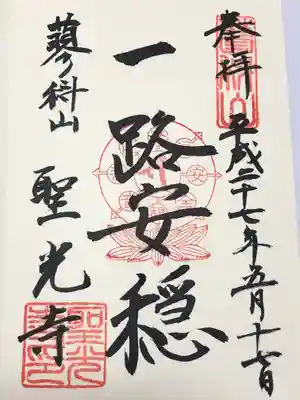 奉拝 平成二十七年五月十七日
一路安穏
蓼科山 聖光寺